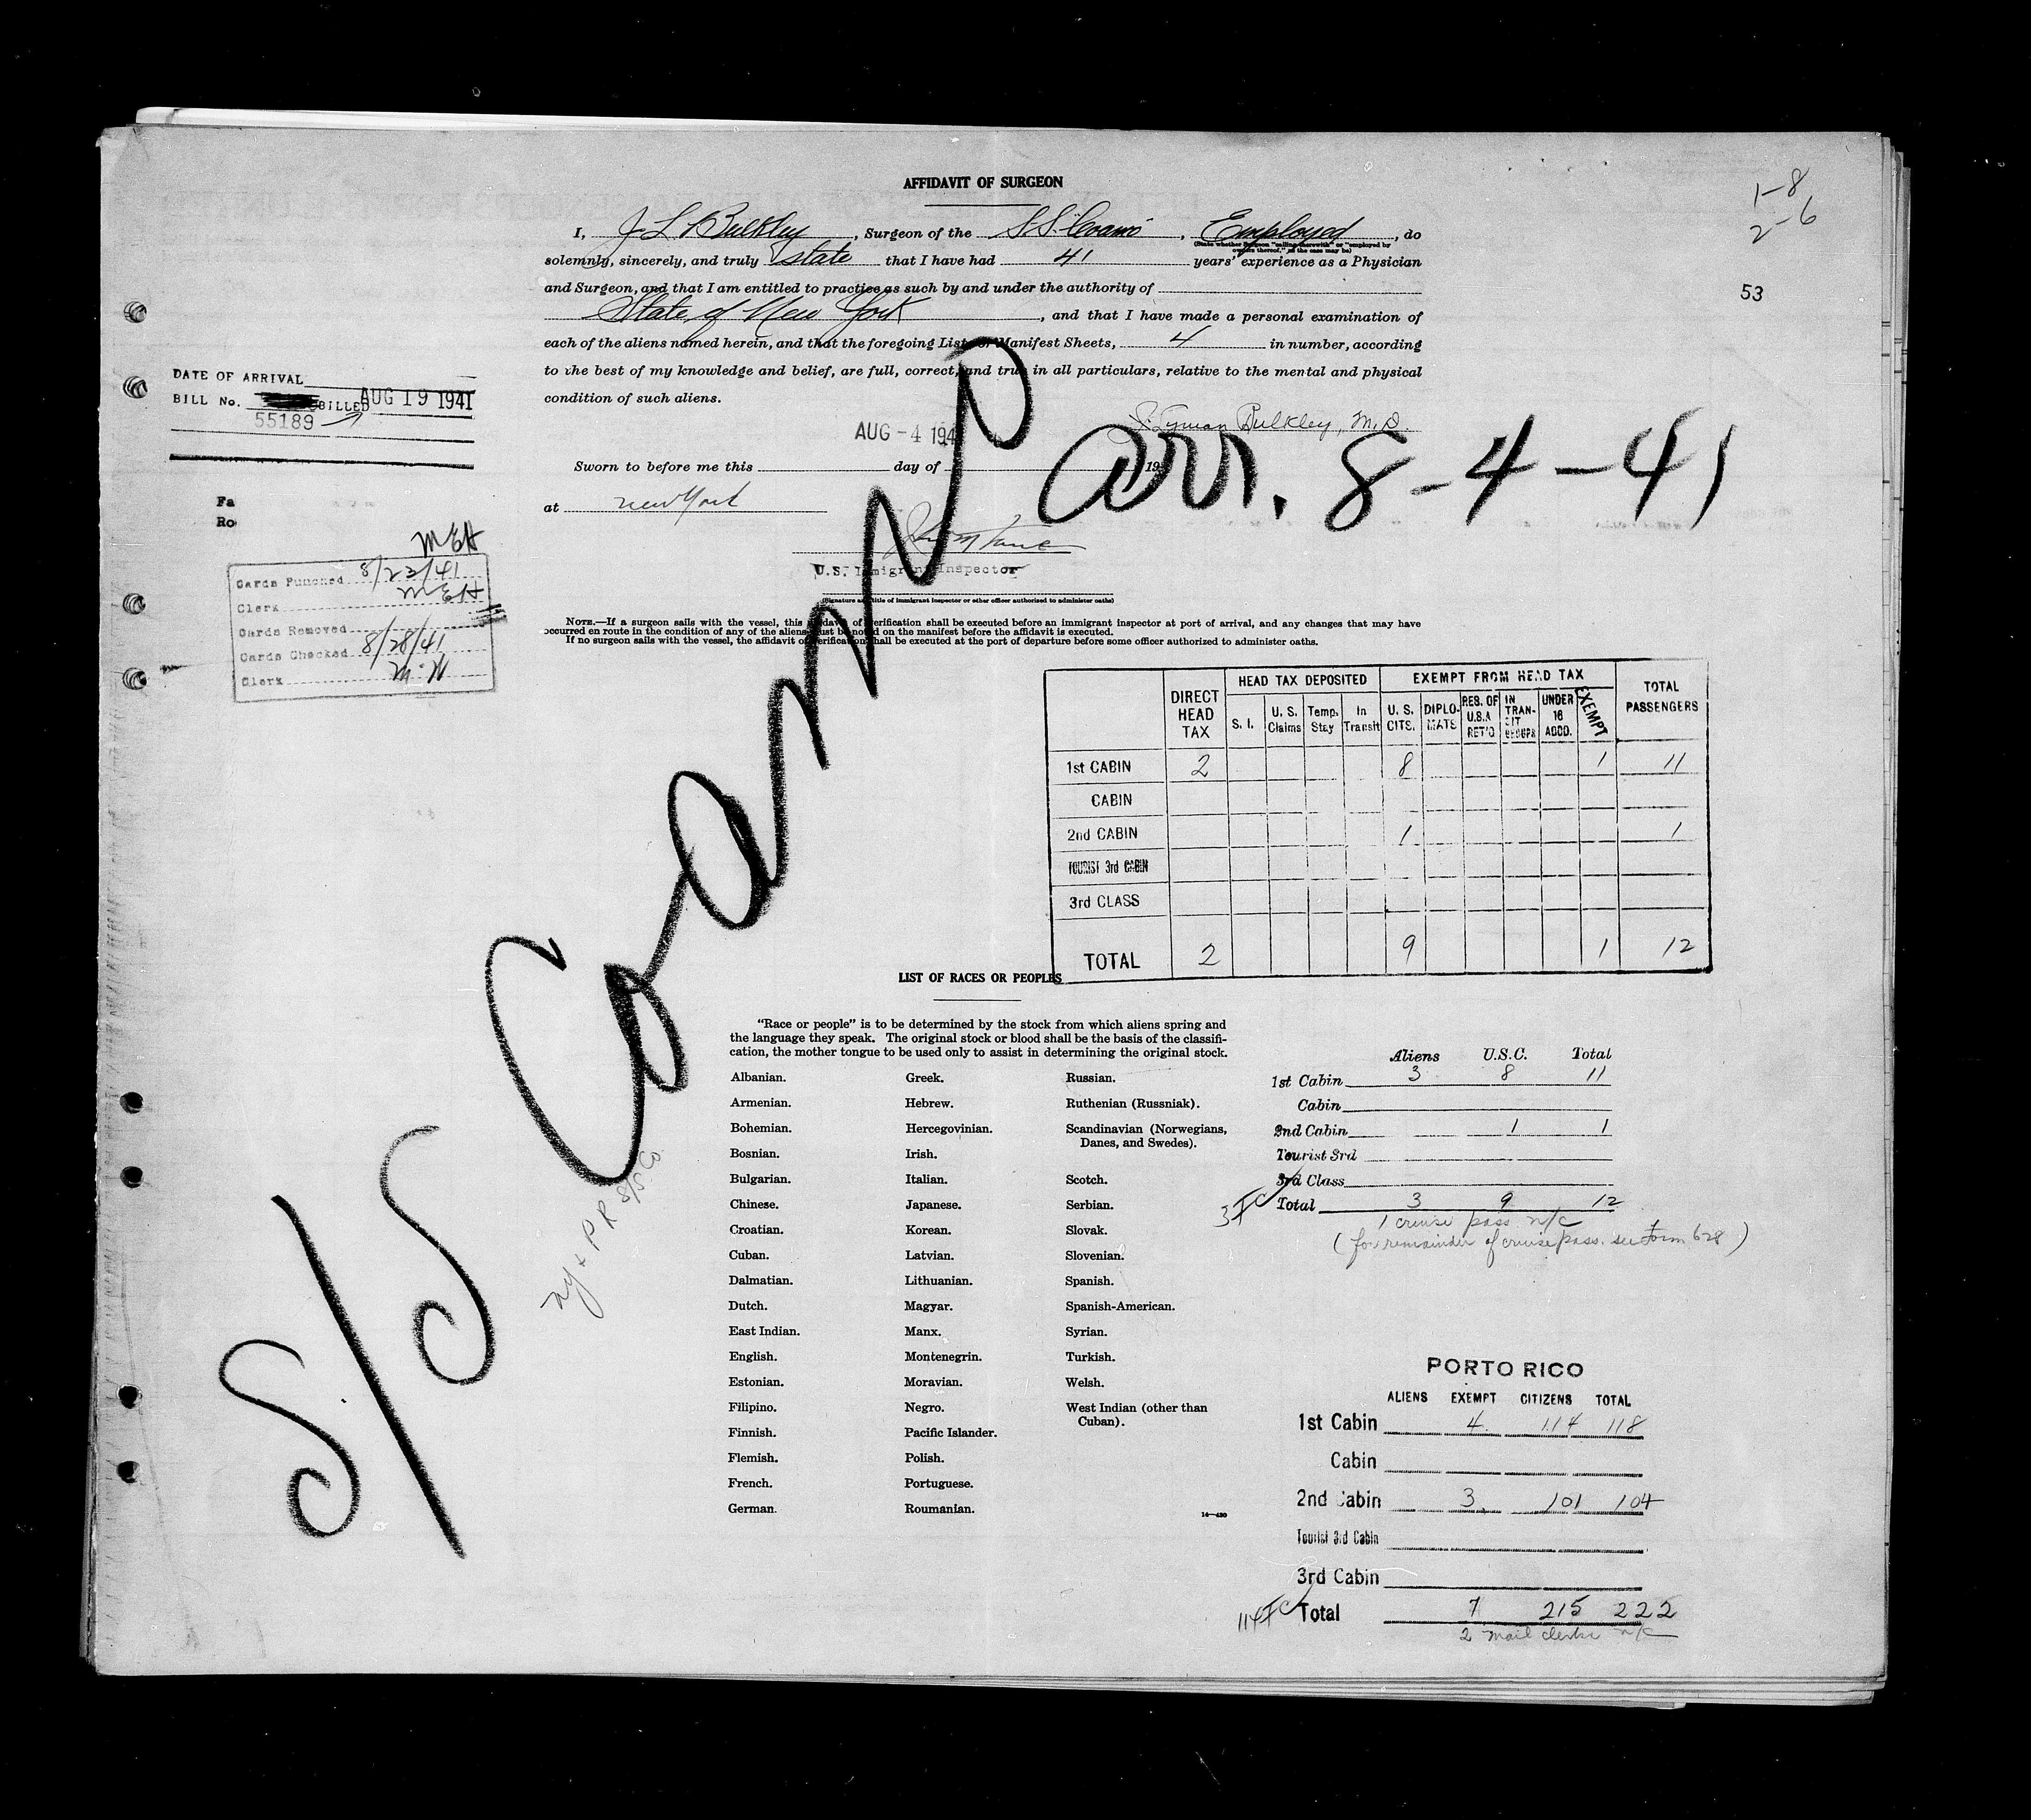 AFFIDAVIT OF SURGEON
1-8
2-6
53
I, J L Bulkley, Surgeon of the S.S. "Coamo", Employed, do
(State whether Surgeon "sailing therewith" or "employed by
owners thereof," as the case may be)
solemnly, sincerely, and truly state that I have had 41 years' experience as a Physician
and Surgeon, and that I am entitled to practice as such by and under the authority of
State of New York, and that I have made a personal examination of
each of the aliens named herein, and that the foregoing Lists or Manifest Sheets, 4 in number, according
to the best of my knowledge and belief, are full, correct, and true in all particulars, relative to the mental and physical
condition of such aliens.
DATE OF ARRIVAL
BILL No. BILLED AUG 19 1941
55189
J. Lyman Bulkley, M.D.
AUG -4 194
Sworn to before me this day of 19
at New York
arr. 8-4-41
U.S. Immigrant Inspector
(Signature and title of Immigrant Inspector or other officer authorized to administer oaths)
Fa
Ro
MEH
Cards Punched 8/22/41
Clerk MEH
Cards Removed
Cards Checked 8/28/41
Clerk M.H
NOTE.—If a surgeon sails with the vessel, this affidavit of verification shall be executed before an immigrant inspector at port of arrival, and any changes that may have
occurred en route in the condition of any of the aliens must be noted on the manifest before the affidavit is executed.
If no surgeon sails with the vessel, the affidavit of verification shall be executed at the port of departure before some officer authorized to administer oaths.
S/S Coamo
NY & PR S/S. Co.
DIRECT HEAD TAX HEAD TAX DEPOSITED EXEMPT FROM HEAD TAX TOTAL PASSENGERS
S. I. U. S. Claims Temp. Stay In Transit U. S. CITS. DIPLOMATS RES. OF U.S.A RET'D IN TRANSIT GROUPS UNDER 16 ACCD. EXEMPT
1st CABIN 2 8 1 11
CABIN
2nd CABIN 1 1
TOURIST 3rd CABIN
3rd CLASS
TOTAL 2 9 1 12
LIST OF RACES OR PEOPLES
"Race or people" is to be determined by the stock from which aliens spring and
the language they speak. The original stock or blood shall be the basis of the classifi-
cation, the mother tongue to be used only to assist in determining the original stock.
Albanian. Greek. Russian.
Armenian. Hebrew. Ruthenian (Russniak).
Bohemian. Hercegovinian. Scandinavian (Norwegians,
Danes, and Swedes).
Bosnian. Irish.
Bulgarian. Italian. Scotch.
Chinese. Japanese. Serbian.
Croatian. Korean. Slovak.
Cuban. Latvian. Slovenian.
Dalmatian. Lithuanian. Spanish.
Dutch. Magyar. Spanish-American.
East Indian. Manx. Syrian.
English. Montenegrin. Turkish.
Estonian. Moravian. Welsh.
Filipino. Negro. West Indian (other than
Cuban).
Finnish. Pacific Islander.
Flemish. Polish.
French. Portuguese.
German. Roumanian.
14—430
Aliens U.S.C. Total
1st Cabin 3 8 11
Cabin
2nd Cabin 1 1
Tourist 3rd
3rd Class
3 FC Total 3 9 12
1 cruise pass n/c
(for remainder of cruise pass. see Form 628)
PORTO RICO
ALIENS EXEMPT CITIZENS TOTAL
1st Cabin 4 114 118
Cabin
2nd Cabin 3 101 104
Tourist 3rd Cabin
3rd Cabin
114 FC Total 7 215 222
2 mail clerks n/c